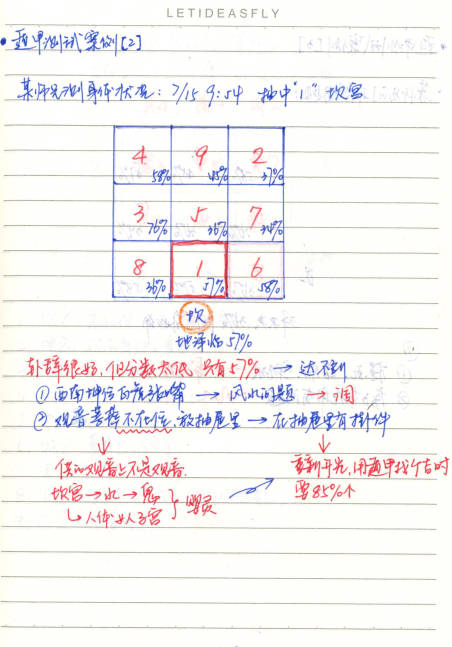 LETIDEASFLY
• 遁甲测试案例[2]
某师兄测身体状况: 7/15 9:54 抽中"1" 坎宫
4 58% 9 45% 2 37%
3 76% 5 36% 7 34%
8 36% 1 57% 6 58%
坎
地泽临 57%
卦辞很好,但分数太低 只有57% → 达不到
① 西南坤位有 → 风水问题 → 调
② 观音菩萨不在位,放抽屉里 → 在抽屉里有挂件
供的观音上不是观音.
坎宫 → 水 → 鬼
↳ 人体 女人子宫
婴灵
重新开光,用遁甲找个吉时
要85%个